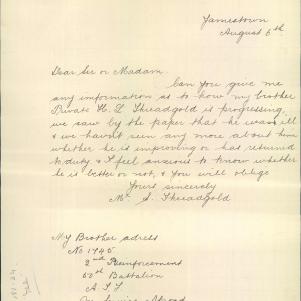 Jamestown
August 6th
Dear Sir or Madam
Can you give me
any imformation as to how my brother
Private H. L Threadgold is progressing,
we saw by the paper that he was ill
& we havent seen any more about him
whether he is improving or has returned
to duty & I feel anxious to know whether
he is better or not, & you will oblige
Yours sincerely
S. Threadgold
My Brother adress
No 1745
2nd Reinforcement
Battalion
A I F
On Service Abroad